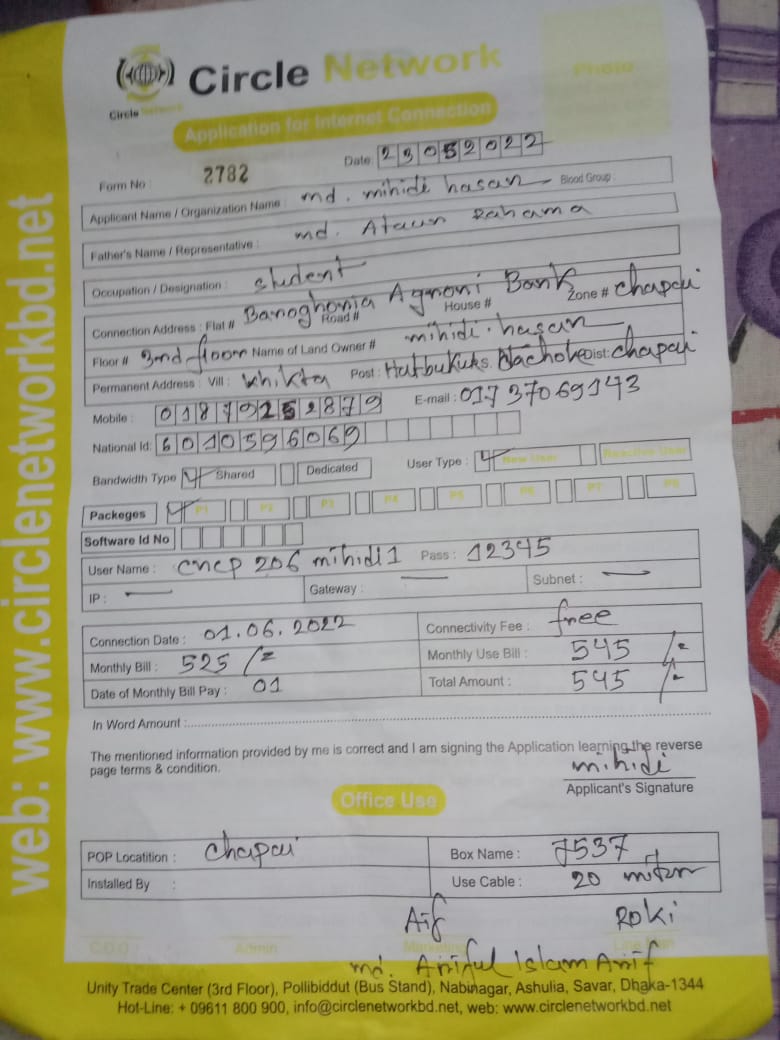 Circle Network
Circle Network
Photo
Application for Internet Connection
Form No : 2782 Date: 23052022
Applicant Name / Organization Name : md. mihidi hasan Blood Group :
Father's Name / Representative : md. Ataur Rahama
Occupation / Designation : student
Connection Address : Flat # Road # House # Zone # chapai
Banoghonia Agroni Bank
Floor # 3nd floor Name of Land Owner # mihidi hasan
Permanent Address : Vill: khikta Post : Hatbukuks. Nachole Dist: chapai
Mobile : 01879252879 E-mail : 01737069143
National Id: 6010596069
Bandwidth Type Shared Dedicated User Type : New User Reactive User
Packeges P1 P2 P3 P4 P5 P6 P7 P8
Software Id No
User Name : cncp 206 mihidi1 Pass : 12345
IP : — Gateway : — Subnet : —
Connection Date : 01.06.2022 Connectivity Fee : free
Monthly Bill : 525/= Monthly Use Bill : 545 /=
Date of Monthly Bill Pay : 01 Total Amount : 545 /=
In Word Amount :
The mentioned information provided by me is correct and I am signing the Application learning the reverse
page terms & condition.
mihidi
Applicant's Signature
Office Use
POP Locatition : chapai Box Name : 7537
Installed By : Use Cable : 20
Roki
C.O.O Admin Marketing Line Man
md. Ariful Islam Arif
Unity Trade Center (3rd Floor), Pollibiddut (Bus Stand), Nabinagar, Ashulia, Savar, Dhaka-1344
Hot-Line: + 09611 800 900, info@circlenetworkbd.net, web: www.circlenetworkbd.net
web: www.circlenetworkbd.net